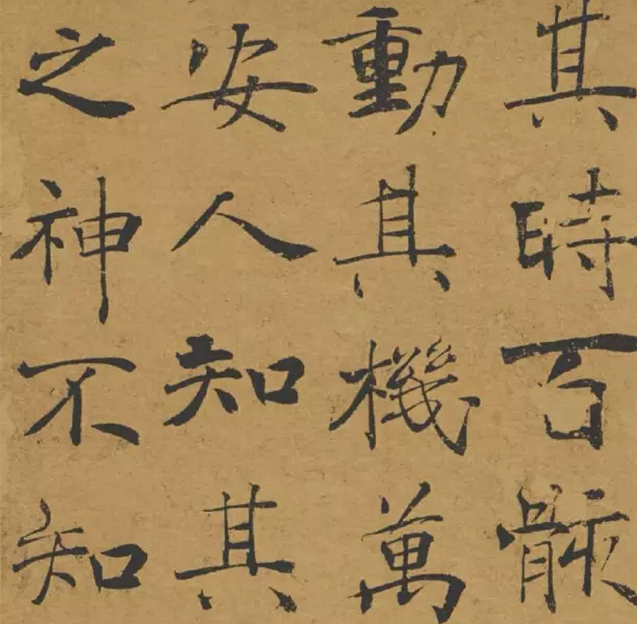 其時百骸
動其機萬
安人知其
之神不知